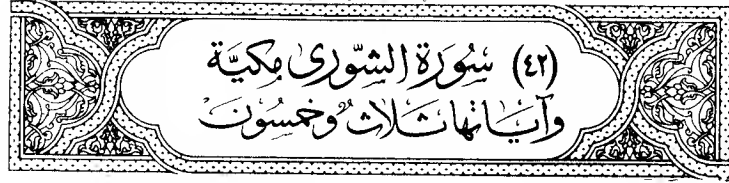 (٤٢) سُورَة الشّورى مكيَّة
وآيَاتها ثَلاثٌ وخمسُون